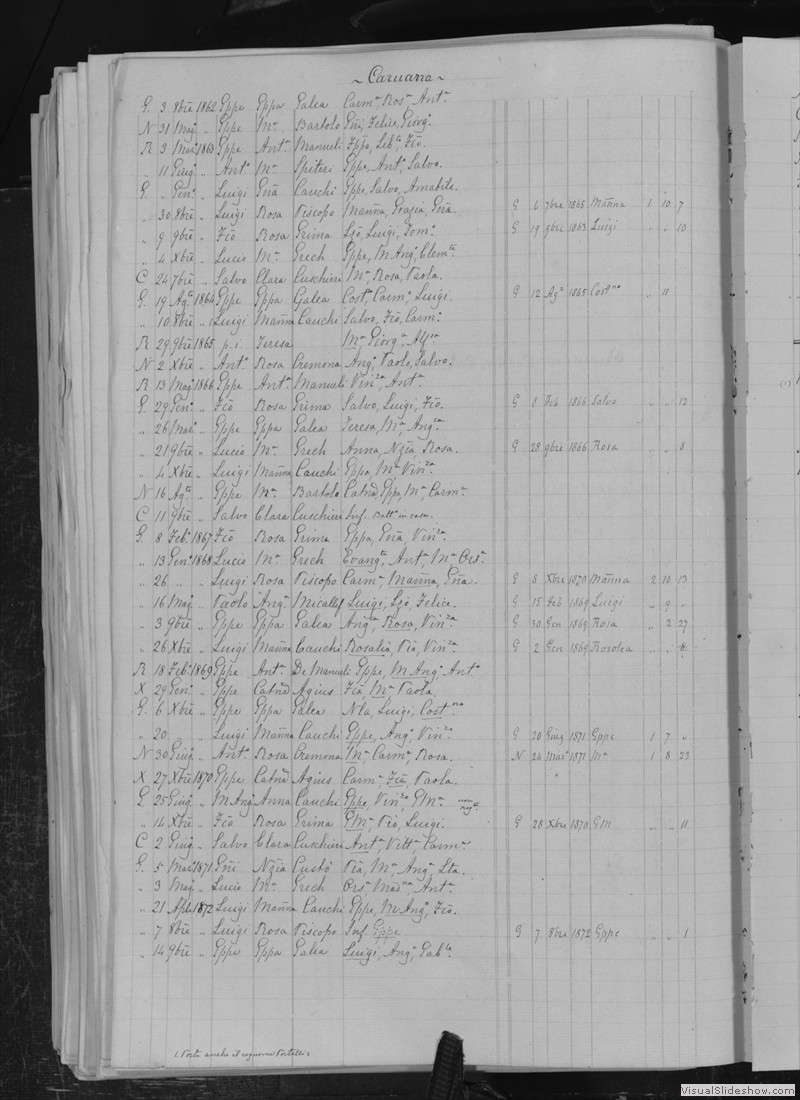 ~ Caruana ~
G. 3 8bre 1862 Gppe Gppa Galea Carmᵃ, Rosᵃ, Antᵃ
N 31 Magᵒ „ Gppe Mᵃ Bartolo Gñi, Felice, Giorgᵒ
R 3 Marᵒ 1863 Gppe Antᵃ Manueli Gppe, Libᵗᵃ, Fiō.
„ 11 Giugᵒ „ Antᵒ Mᵃ Spiteri Gppe, Antᵒ, Salvo.
G. „ Genᵒ „ Luigi Gñā Cauchi Gppe, Salvo, Amabile.
„ 30 8bre „ Luigi Rosa Piscopo Mañña, Grazia, Gñā. G 6 7bre 1865 Mañña 1 10 7
„ 9 9bre „ Fiō Rosa Grima Lzō, Luigi, Domᵒ G 19 9bre 1863 Luigi „ „ 10
„ 4 Xbre „ Lucio Mᵃ Grech Gppe, M. Angᵒ, Clemᵗᵃ
C 24 7bre „ Salvo Clara Cuschieri Mᵃ, Rosa, Paola.
G. 19 Agᵗᵒ 1864 Gppe Gppa Galea Costⁿᵒ, Carmᵒ, Luigi. G 12 Agᵒ 1865 Costⁿᵒ „ 11
„ 10 8bre „ Luigi Mañña Cauchi Salvo, Fiō, Carmᵒ
R 29 9bre 1865 p.i. Teresa Mᵃ, Giorgᵃ, Alfᵃ
N 2 Xbre „ Antᵒ Rosa Cremona Angᵒ, Paolo, Salvo.
R 13 Magᵒ 1866 Gppe Antᵃ Manueli Vinᶻᵃ, Antᵃ
G. 29 Genᵒ „ Fiō Rosa Grima Salvo, Luigi, Fiō. G 8 Feb 1866 Salvo „ „ 12
„ 26 Marᵒ „ Gppe Gppa Galea Teresa, Mᵃ, Angᵃ
„ 21 9bre „ Lucio Mᵃ Grech Anna, Nzia, Rosa. G 28 9bre 1866 Rosa „ „ 8
„ 4 Xbre „ Luigi Mañña Cauchi Gppa, Mᵃ, Vinᶻᵃ
N 16 Agᵗᵒ „ Gppe Mᵃ Bartolo Catñā, Gppa, Mᵃ, Carmᵃ
C 11 9bre „ Salvo Clara Cuschieri Inf. Battᵒ in casa.
G. 8 Febᵒ 1867 Fiō Rosa Grima Gppa, Gñā, Vinᶻᵃ
„ 13 Genᵒ 1868 Lucio Mᵃ Grech Evangᵗᵃ, Antᵃ, Mᵃ Orsᵃ
„ 26 „ „ Luigi Rosa Piscopo Carmᵃ, Mañña, Gñā. G 8 Xbre 1870 Mañña 2 10 13
„ 16 Magᵒ „ Paolo Angᵃ Micallef Luigi, Lzō, Felice. G 15 Feb 1869 Luigi „ 9 „
„ 3 9bre „ Gppe Gppa Galea Angᵗᵃ, Rosa, Vinᶻᵃ G 30 Gen 1869 Rosa „ 2 27
„ 26 Xbre „ Luigi Mañña Cauchi Rosalia, Pia, Vinᶻᵃ G 2 Gen 1869 Rosolea „ „ 8
R 18 Febᵒ 1869 Gppe Antᵃ De Manueli Gppe, M. Angᵒ, Antᵒ
X 29 Genᵒ „ Gppe Catñā Agius Fiā, Mᵃ, Paola.
G. 6 Xbre „ Gppe Gppa Galea Nla, Luigi, Costⁿᵒ
„ 20 „ „ Luigi Mañña Cauchi Gppe, Angᵒ, Vinᶻᵒ G 20 Giug 1871 Gppe 1 7 „
N 30 Giugᵒ „ Antᵒ Rosa Cremona Mᵃ, Carmᵃ, Rosa. N 24 Marᵒ 1871 Mᵃ 1 8 23
X 27 Xbre 1870 Gppe Catñā Agius Carmᵃ, Fiā, Paola.
G 25 Giugᵒ „ M. Angᵒ Anna Cauchi Gppe, Vinᶻᵒ, GMᵃ
„ 14 Xbre „ Fiō Rosa Grima GMᵃ, Pio, Luigi. G 28 Xbre 1870 GM „ „ 11
C 2 Giugᵒ „ Salvo Clara Cuschieri Antᵃ, Vittᵃ, Carmᵃ
G. 5 Marᵒ 1871 Gñi Nzia Custo' Pia, Mᵃ, Angᵃ, Lta.
„ 3 Magᵒ „ Lucio Mᵃ Grech Orsᵃ, Marⁿᵃ, Antᵃ
„ 21 Aple 1872 Luigi Mañña Cauchi Gppe, M. Angᵒ, Fiō.
„ 7 8bre „ Luigi Rosa Piscopo Inf. Gppe G 7 8bre 1872 Gppe „ „ 1
„ 14 9bre „ Gppe Gppa Galea Luigi, Angᵒ, Gabˡᵉ
1. Porta anche il cognome Portelli
VisualSlideshow.com